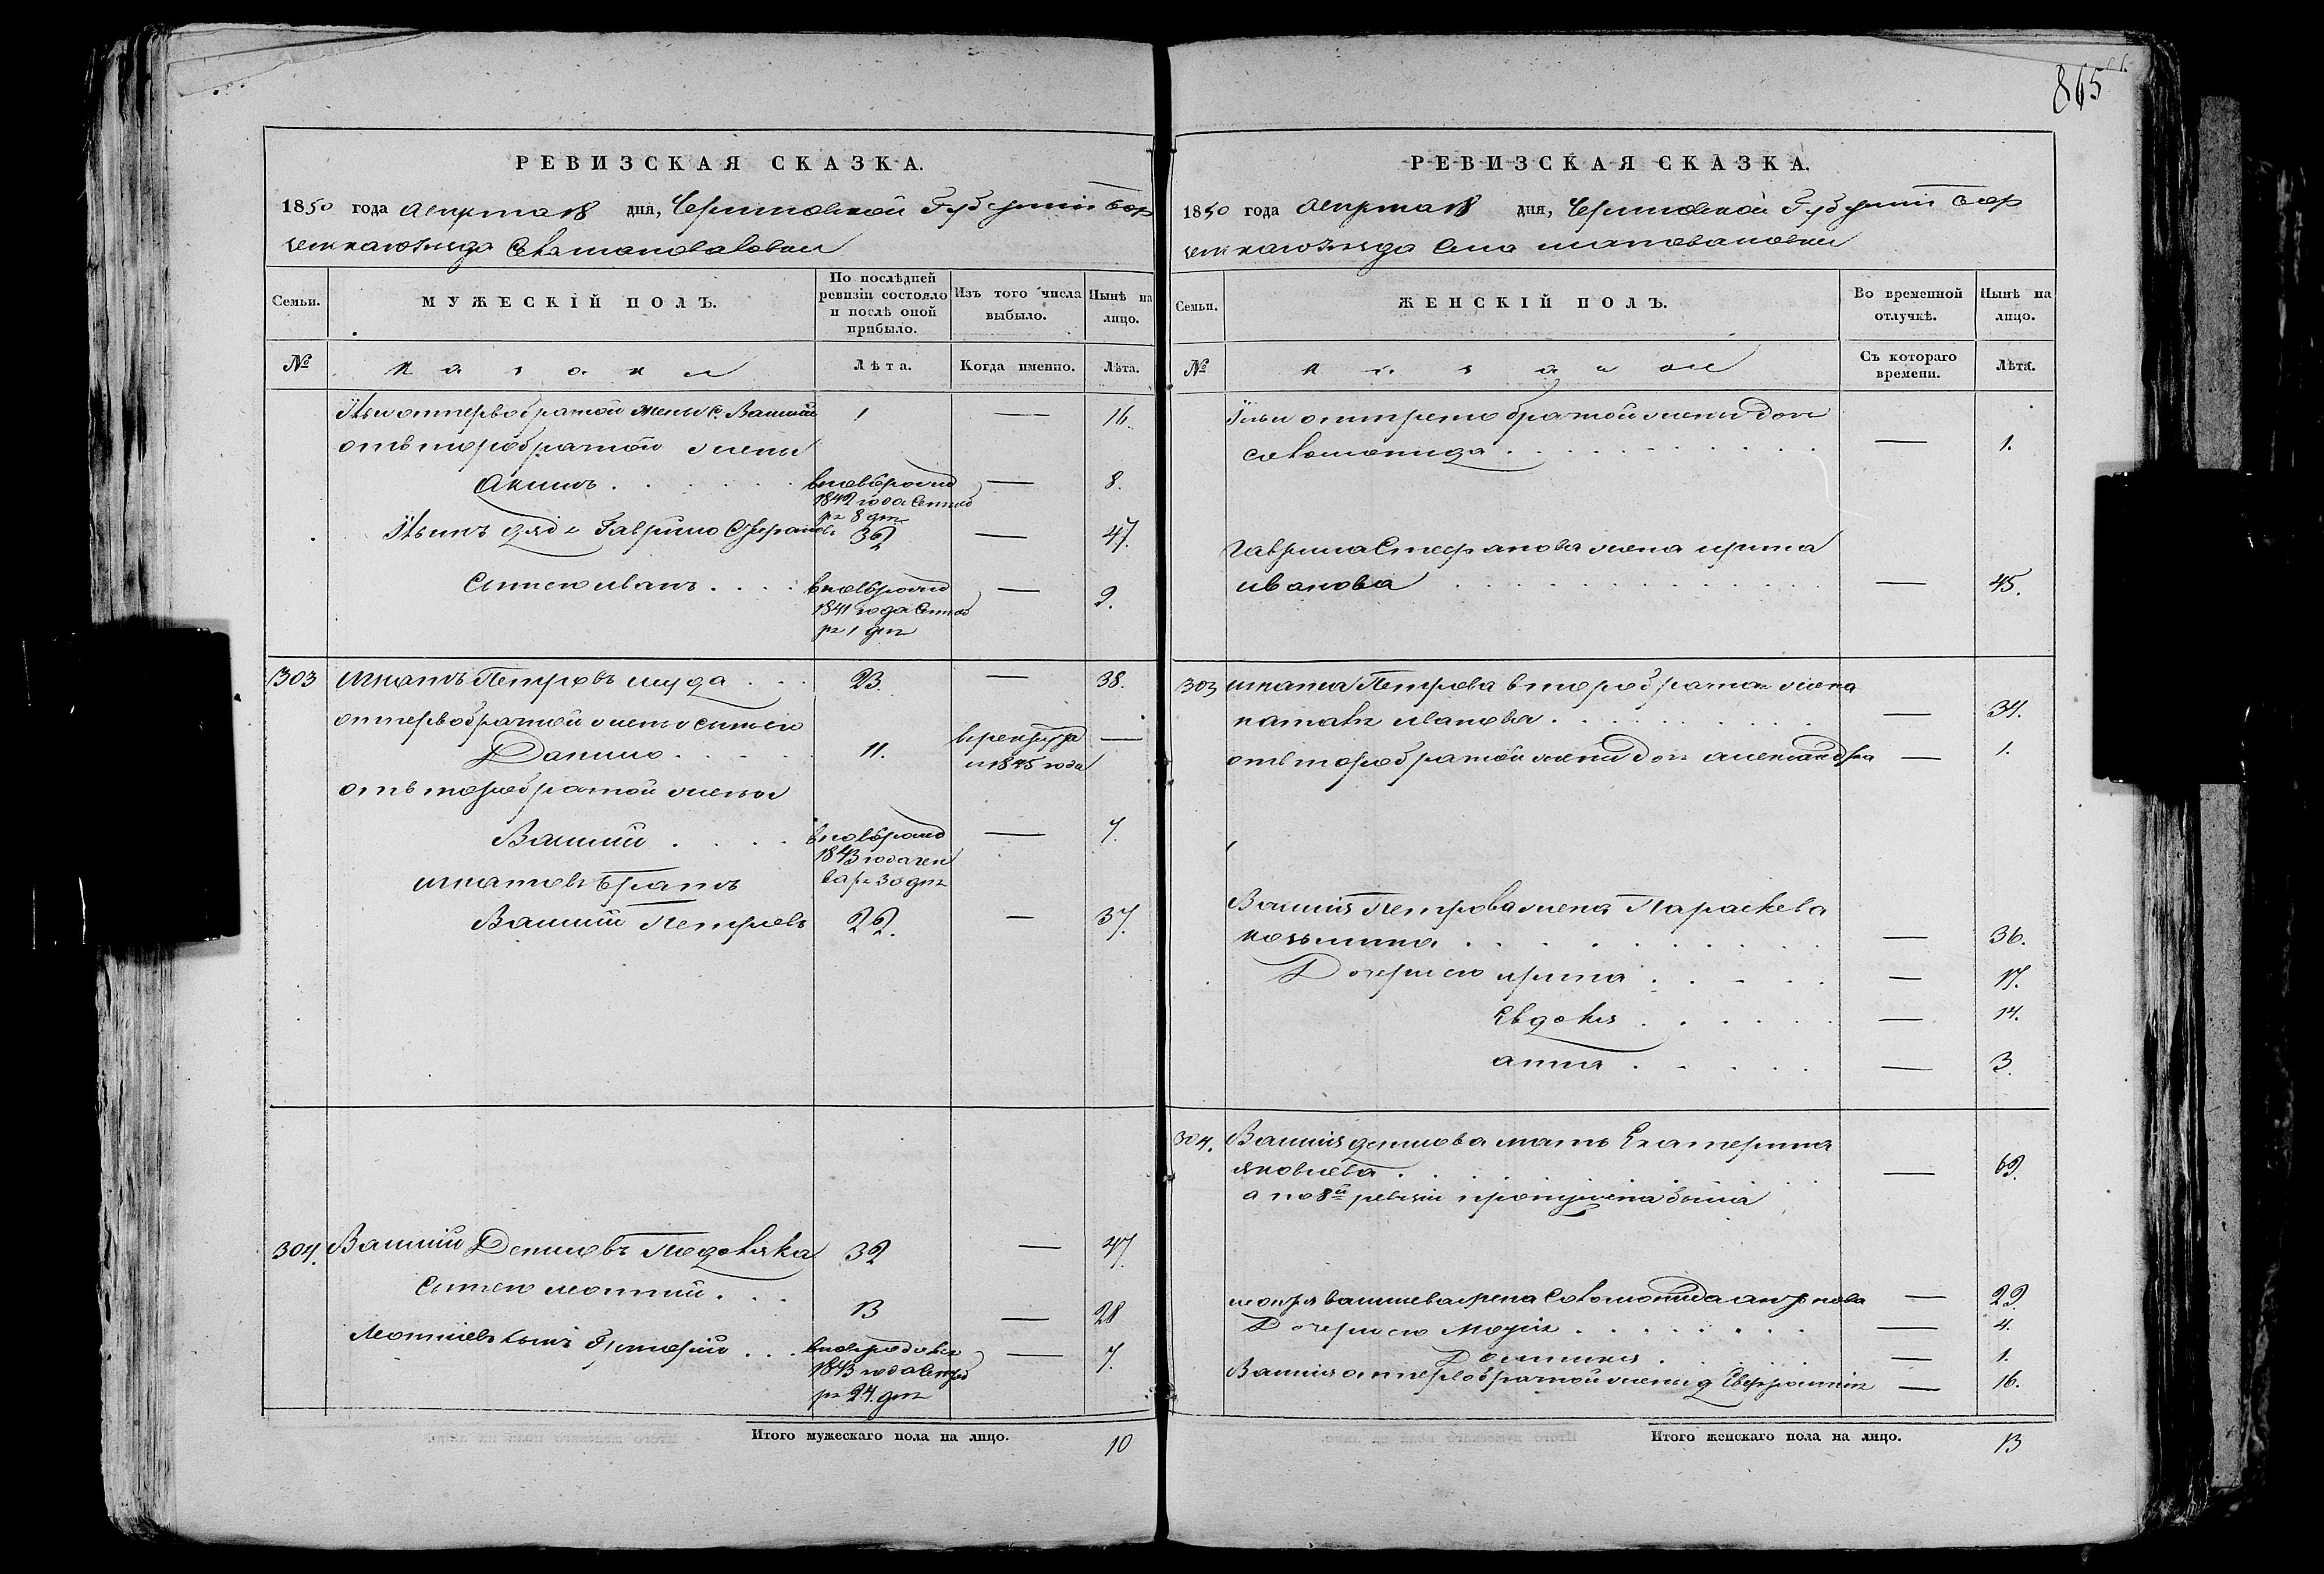 865
РЕВИЗСКАЯ СКАЗКА.
1850 года августа 18 дня, Черниговской Губернии Бор
Семьи.
МУЖЕСКІЙ ПОЛЪ.
По послѣдней ревизіи состояло и послѣ оной прибыло.
Изъ того числа выбыло.
Нынѣ на лицо.
№
казаки
Лѣта.
Когда именно.
Лѣта.
Ильи от первобратой жены с. Василий 1 — 16.
от второбратой жены
Акимъ
вновьрожд
— 8.
1842 года Сентяб
ря 8 дня
Ильинъ дядя Гаврило Стефановъ 32 — 47.
Сынъ его Иванъ
вновьрожд
— 9.
1841 года Сентяб
ря 1 дня
303 Игнатъ Петровъ 23. — 38.
от первобратой жены сынъ его
Данило 11.
в рекруты —
1845 года
от второбратой жены
Василий
вновьрожд
— 7.
1843 года ген
варя 30 дня
Игнатовъ братъ
Василий Петровъ 22. — 37.
304. Василий Денисовъ 32 — 47.
Сынъ его Леонтий 13 — 28
Леонтиевъ сынъ Григорий
— 7.
1843 года Сентяб
ря 24 дня
Итого мужескаго пола на лицо. 10
РЕВИЗСКАЯ СКАЗКА.
1850 года августа 18 дня, Черниговской Губернии Бор
Семьи.
ЖЕНСКІЙ ПОЛЪ.
Во временной отлучкѣ.
Нынѣ на лицо.
№
Съ котораго времени.
Лѣта.
Ильи от третобратой жены дочь
Соломонида — 1.
Гаврила Стефанова жена Ирина
Иванова — 45.
303 Игната Петрова второбратая жена
Наталья Иванова — 34.
от второбратой жены дочь Александра — 1.
Василия Петрова жена Параскева
Козьмина — 36.
Дочери его Ирина — 17.
Евдокия — 14.
Анна — 3.
304. Василия Денисова мать Екатерина
Яковлева — 69.
а по 8й ревизии пропущена была
жена Соломонида — 29.
Дочери его — 4.
— 1.
Василия от первобратой жены д — 16.
Итого женскаго пола на лицо. 13